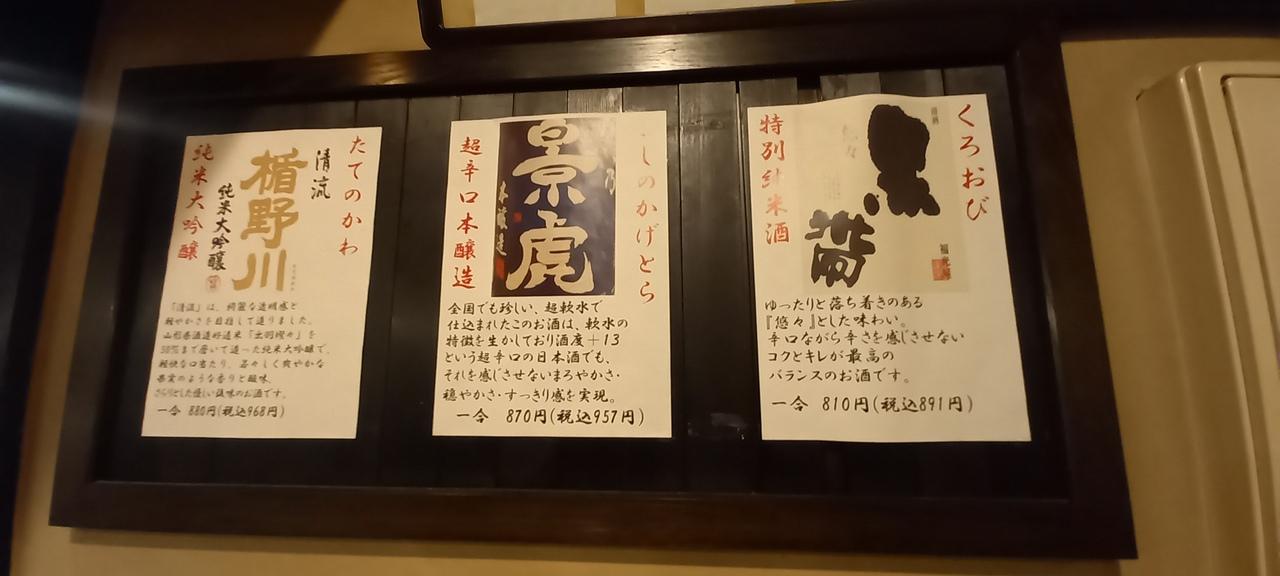 たてのかわ
清流
楯野川
純米大吟醸
純米大吟醸
「清流」は、綺麗な透明感と
軽やかさを目指して造りました。
山形県酒造好適米「出羽燦々」を
50%まで磨いて造った純米大吟醸で、
軽快な口当たり、若々しく爽やかな
果実のような香りと酸味、
さらりとした優しい風味のお酒です。
一合 880円(税込968円)
こしのかげとら
景虎
本醸造
超辛口本醸造
全国でも珍しい、超軟水で
仕込まれたこのお酒は、軟水の
特徴を生かしており酒度+13
という超辛口の日本酒でも、
それを感じさせないまろやかさ・
穏やかさ・すっきり感を実現。
一合 870円(税込957円)
くろおび
黒帯
悠々
福光屋
特別純米酒
ゆったりと落ち着きのある
『悠々』とした味わい。
辛口ながら辛さを感じさせない
コクとキレが最高の
バランスのお酒です。
一合 810円(税込891円)